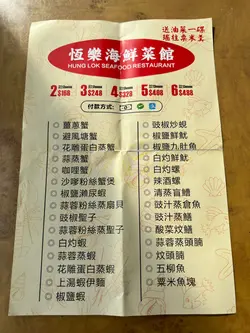 送油菜一碟
恆樂海鮮菜館
HUNG LOK SEAFOOD RESTAURANT
2 $168
3 $248
4 $328
5 $408
6 $488
付款方式：
薑蔥蟹
避風塘蟹
花雕蛋白蒸蟹
蒜蒸蟹
咖喱蟹
沙嗲粉絲蟹煲
椒鹽瀨尿蝦
蒜蓉粉絲蒸扇貝
豉椒聖子
蒜蓉粉絲蒸聖子
白灼蝦
蒜蓉蒸蝦
花雕蛋白蒸蝦
上湯蝦伊麵
椒鹽蝦
豉椒炒蜆
椒鹽鮮魷
椒鹽九肚魚
白灼鮮魷
白灼螺
辣酒螺
清蒸盲鰽
豉汁蒸倉魚
豉汁蒸鱔
酸菜炆鱔
清蒸蒜頭腩
炆頭腩
五柳魚
粟米魚塊